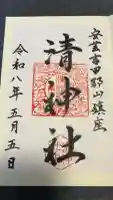 安芸吉田郡山鎮座
清神社
令和八年五月五日